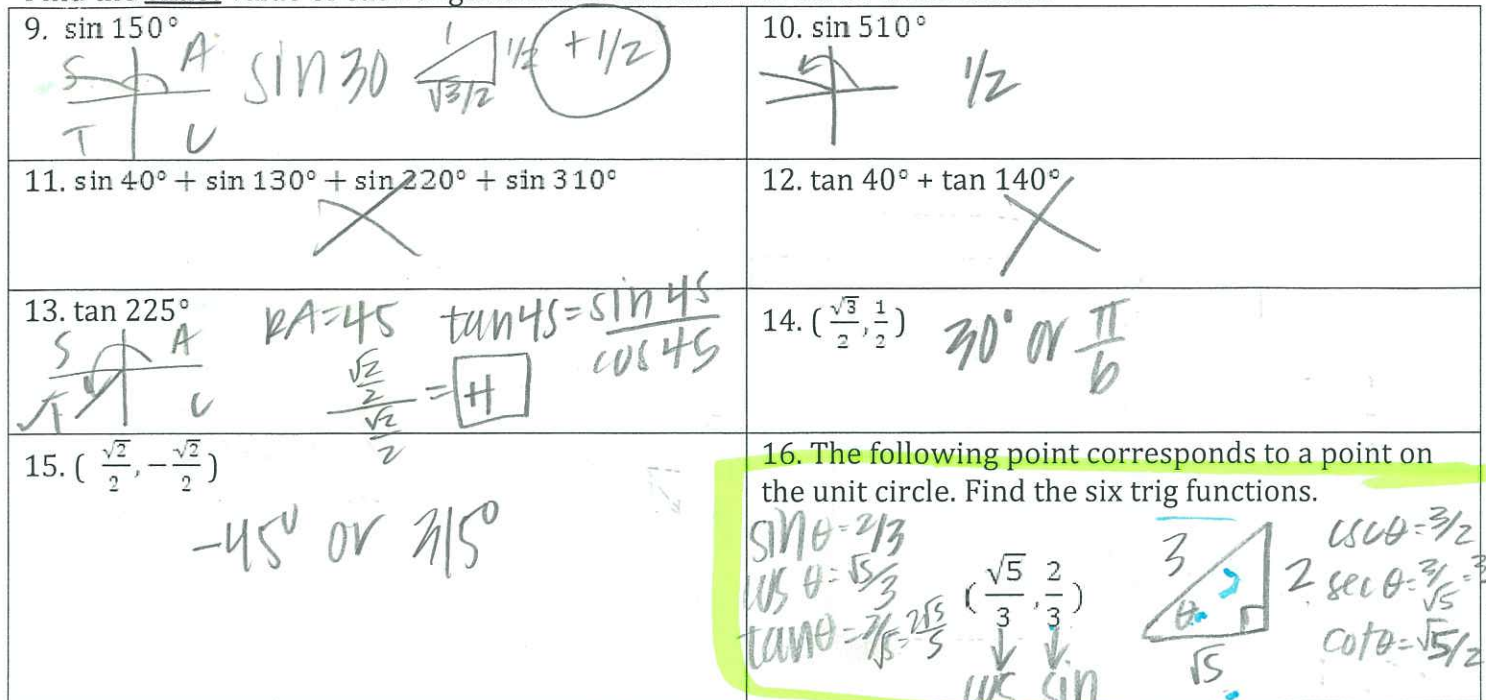 9. sin 150°
S A
T C
sin 30
1
1/2
√3/2
+1/2
10. sin 510°
1/2
11. sin 40° + sin 130° + sin 220° + sin 310°
12. tan 40° + tan 140°
13. tan 225°
S A
T C
RA=45
tan 45 = sin 45 / cos 45
√2/2 / √2/2 = +1
14. (√3/2, 1/2)
30° or π/6
15. (√2/2, -√2/2)
-45° or 315°
16. The following point corresponds to a point on
the unit circle. Find the six trig functions.
sinθ = 2/3
cosθ = √5/3
tanθ = 2/√5 = 2√5/5
(√5/3, 2/3)
cos sin
3
2
θ
√5
cscθ = 3/2
secθ = 3/√5 =
cotθ = √5/2